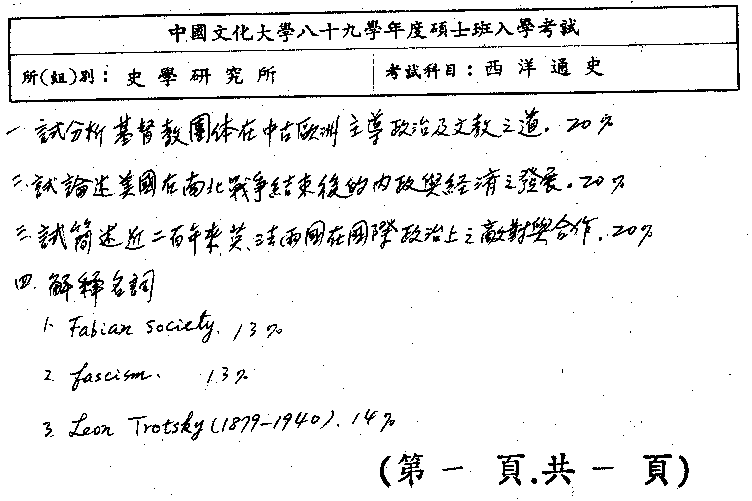 中國文化大學八十九學年度碩士班入學考試
所(組)別：史學研究所 考試科目：西洋通史
一 試分析基督教團体在中古歐洲主導政治及文教之道。20%
二. 試論述美國在南北戰爭結束後的內政與經濟之發展。20%
三. 試簡述近二百年來英、法兩國在國際政治上之敵對與合作. 20%
四. 解釋名詞
1. Fabian society. 13%
2. fascism. 13%
3. Leon Trotsky (1879-1940). 14%
(第一頁.共一頁)